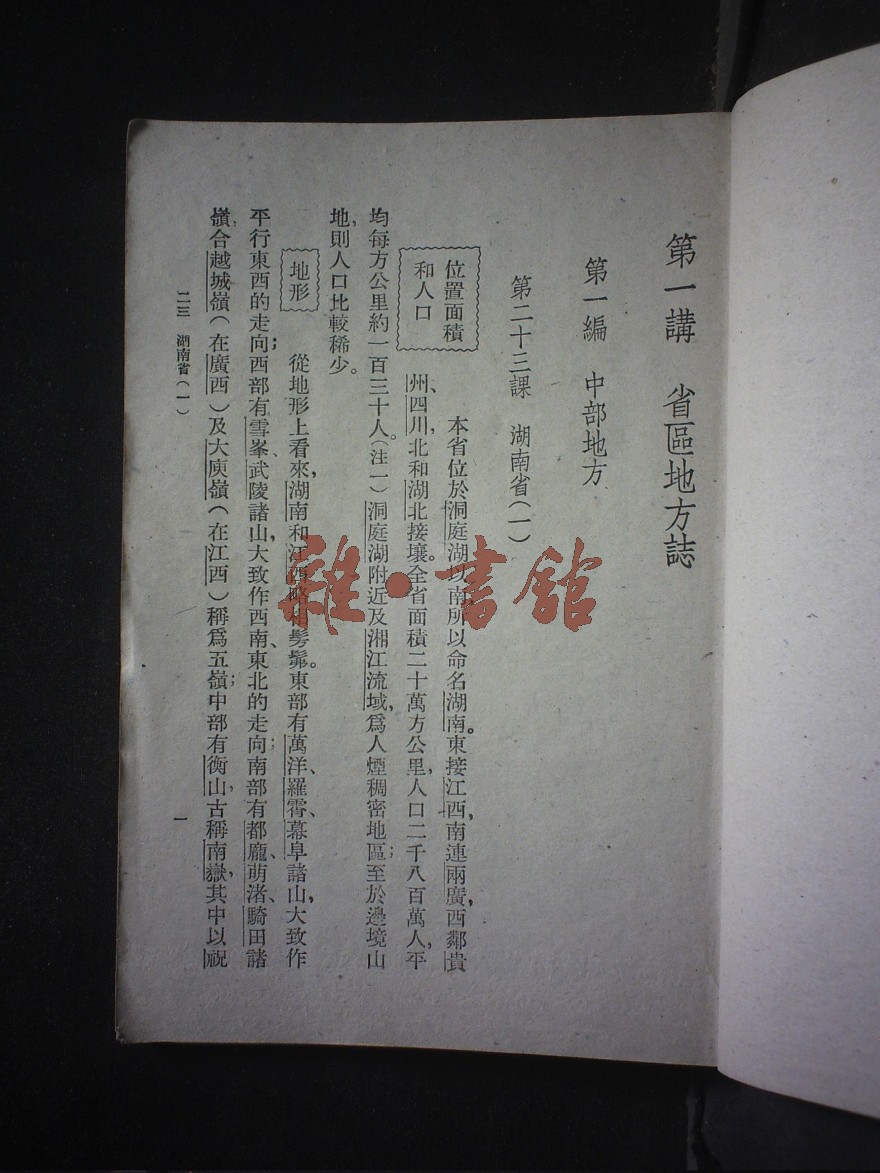 第一講　省區地方誌
第一編　中部地方
第二十三課　湖南省(一)
位置面積
和人口
本省位於洞庭湖以南,所以命名湖南。東接江西,南連兩廣,西鄰貴
州、四川,北和湖北接壤。全省面積二十萬方公里,人口二千八百萬人,平
均每方公里約一百三十人。(注一)洞庭湖附近及湘江流域,爲人煙稠密地區;至於邊境山
地,則人口比較稀少。
地形
從地形上看來,湖南和江西略相髣髴。東部有萬洋、羅霄、幕阜諸山,大致作
平行東西的走向;西部有雪峯、武陵諸山,大致作西南、東北的走向;南部有都龐、萌渚、騎田諸
嶺,合越城嶺(在廣西)及大庾嶺(在江西)稱爲五嶺;中部有衡山,古稱南嶽,其中以祝
二三　湖南省(一)
一
雜·書館